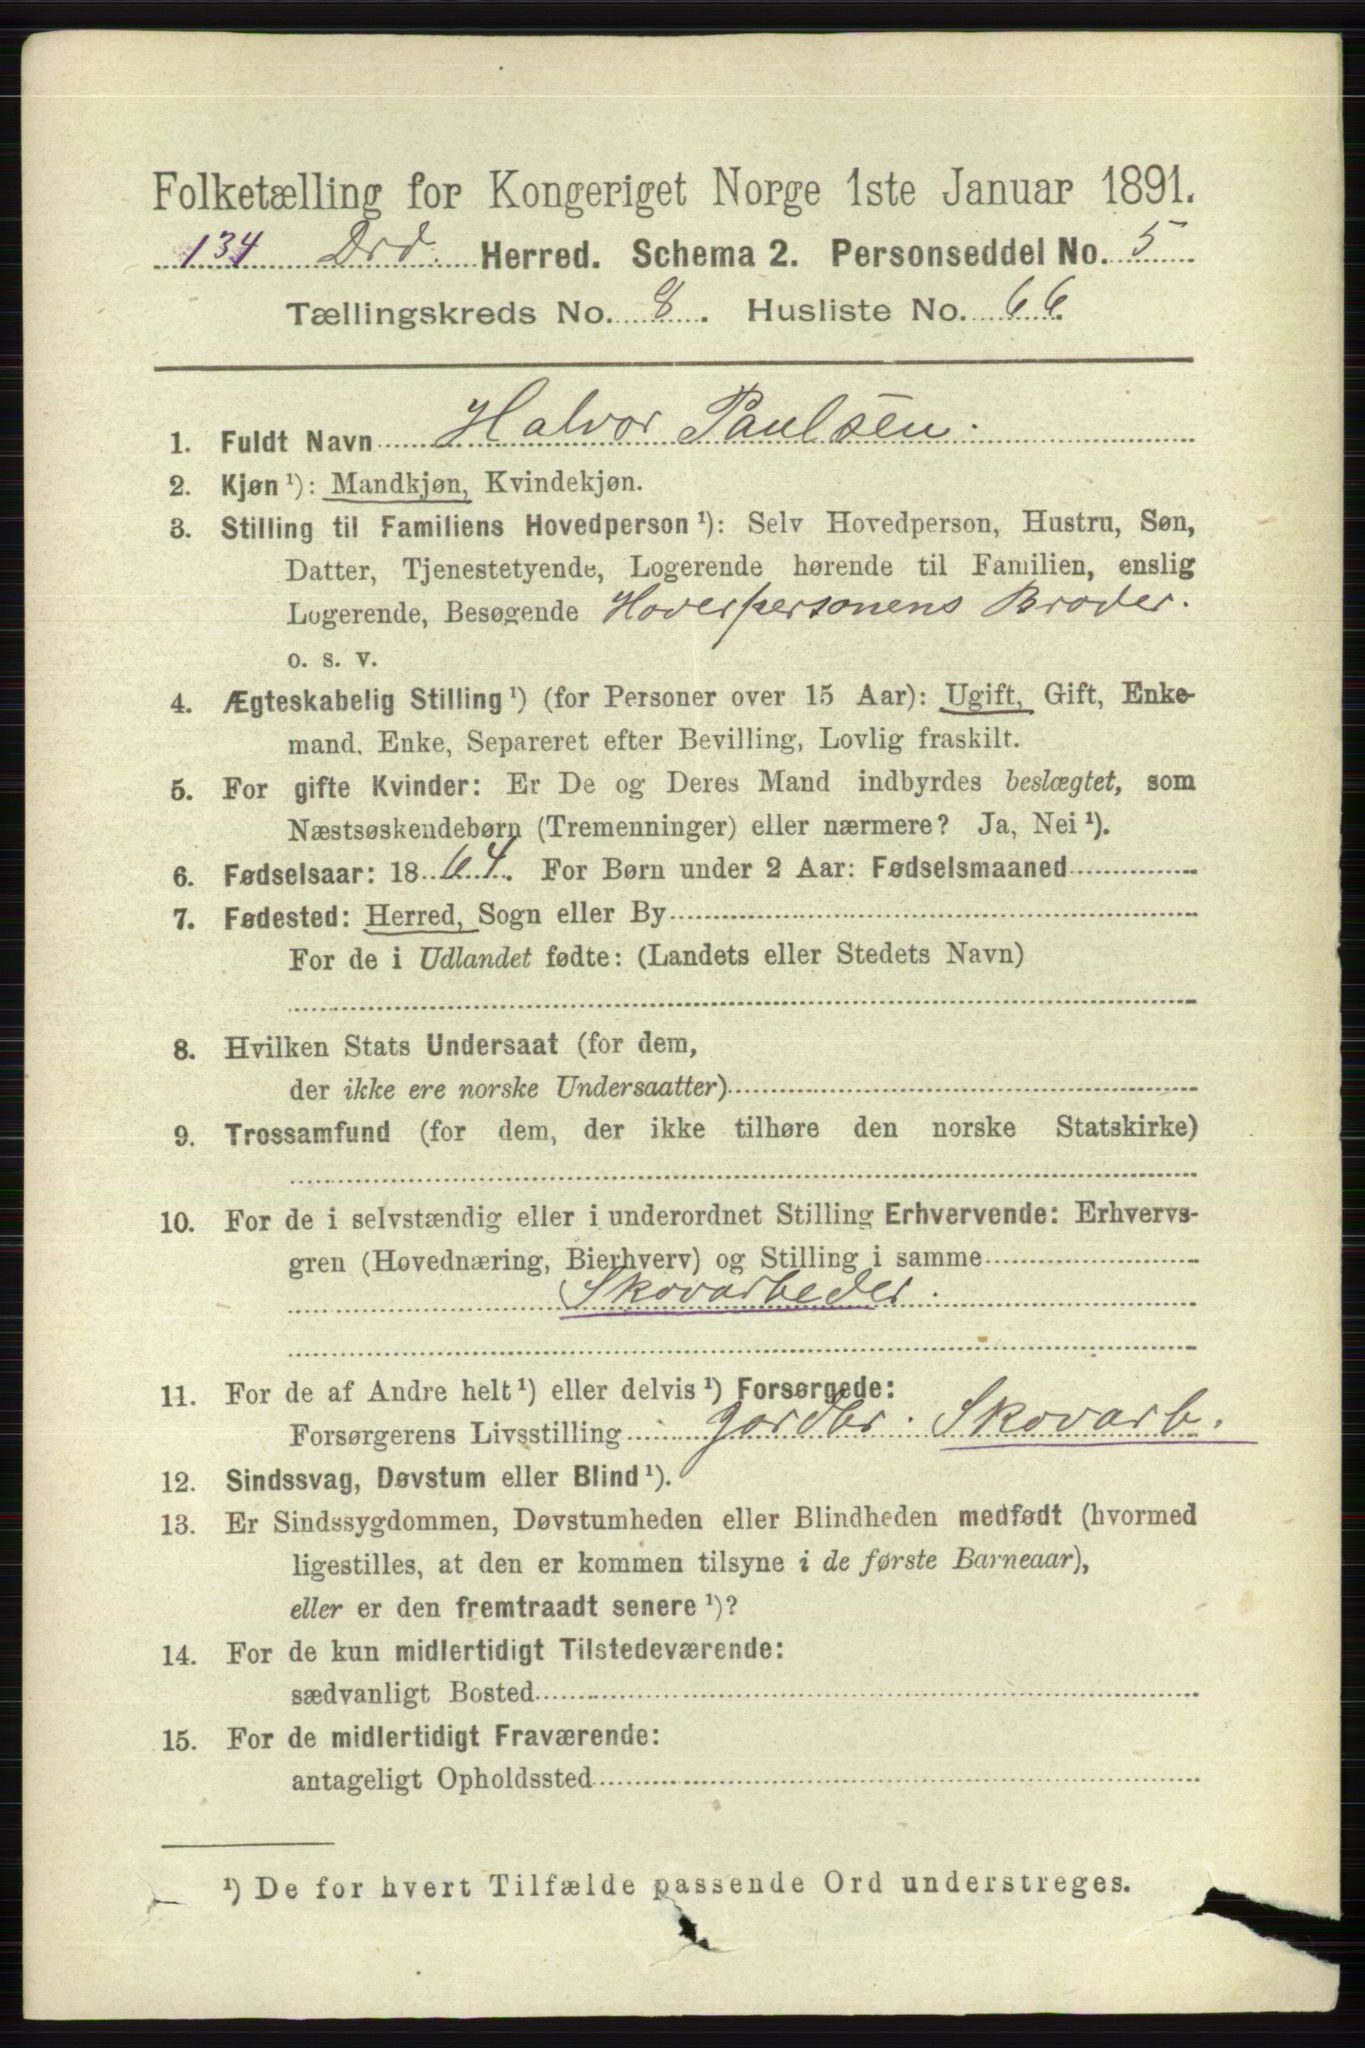 Folketælling for Kongeriget Norge 1ste Januar 1891.
134 Drd. Herred. Schema 2. Personseddel No. 5
Tællingskreds No. 8. Husliste No. 66.
1. Fuldt Navn Halvor Paulsen.
2. Kjøn ¹): Mandkjøn, Kvindekjøn.
3. Stilling til Familiens Hovedperson ¹): Selv Hovedperson, Hustru, Søn,
Datter, Tjenestetyende, Logerende hørende til Familien, enslig
Logerende, Besøgende Hoverpersonens Broder.
o. s. v.
4. Ægteskabelig Stilling ¹) (for Personer over 15 Aar): Ugift, Gift, Enke-
mand, Enke, Separeret efter Bevilling, Lovlig fraskilt.
5. For gifte Kvinder: Er De og Deres Mand indbyrdes beslægtet, som
Næstsøskendebørn (Tremenninger) eller nærmere? Ja, Nei ¹).
6. Fødselsaar: 1864. For Børn under 2 Aar: Fødselsmaaned
7. Fødested: Herred, Sogn eller By
For de i Udlandet fødte: (Landets eller Stedets Navn)
8. Hvilken Stats Undersaat (for dem,
der ikke ere norske Undersaatter)
9. Trossamfund (for dem, der ikke tilhøre den norske Statskirke)
10. For de i selvstændig eller i underordnet Stilling Erhvervende: Erhvervs-
gren (Hovednæring, Bierhverv) og Stilling i samme
Skovarbeder.
11. For de af Andre helt ¹) eller delvis ¹) Forsørgede:
Forsørgerens Livsstilling Jordbr. Skovarb.
12. Sindssvag, Døvstum eller Blind ¹).
13. Er Sindssygdommen, Døvstumheden eller Blindheden medfødt (hvormed
ligestilles, at den er kommen tilsyne i de første Barneaar),
eller er den fremtraadt senere ¹)?
14. For de kun midlertidigt Tilstedeværende:
sædvanligt Bosted
15. For de midlertidigt Fraværende:
antageligt Opholdssted
¹) De for hvert Tilfælde passende Ord understreges.